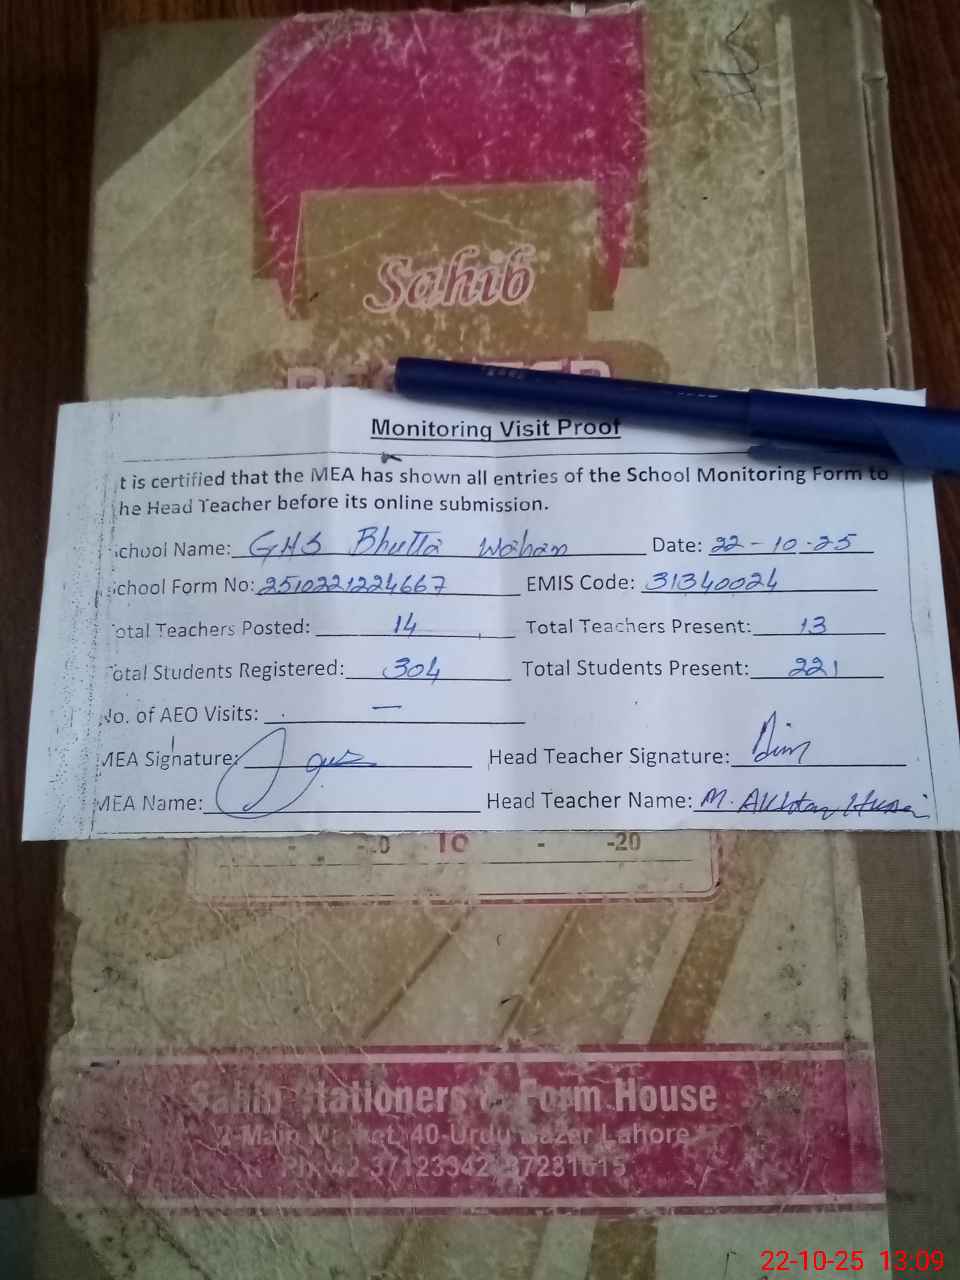 Sahib
REGISTER
Monitoring Visit Proof
t is certified that the MEA has shown all entries of the School Monitoring Form to
he Head Teacher before its online submission.
chool Name: GHS Bhutta Wahan Date: 22-10-25
chool Form No: 2510221224667 EMIS Code: 31340024
otal Teachers Posted: 14 Total Teachers Present: 13
otal Students Registered: 304 Total Students Present: 221
No. of AEO Visits: —
MEA Signature: Head Teacher Signature:
MEA Name: Head Teacher Name: M. Akhtar Hussai
To - -20
Sahib Stationers & Form House
2-Main Market, 40-Urdu Bazar Lahore
Ph: 42-37123342
22-10-25 13:09